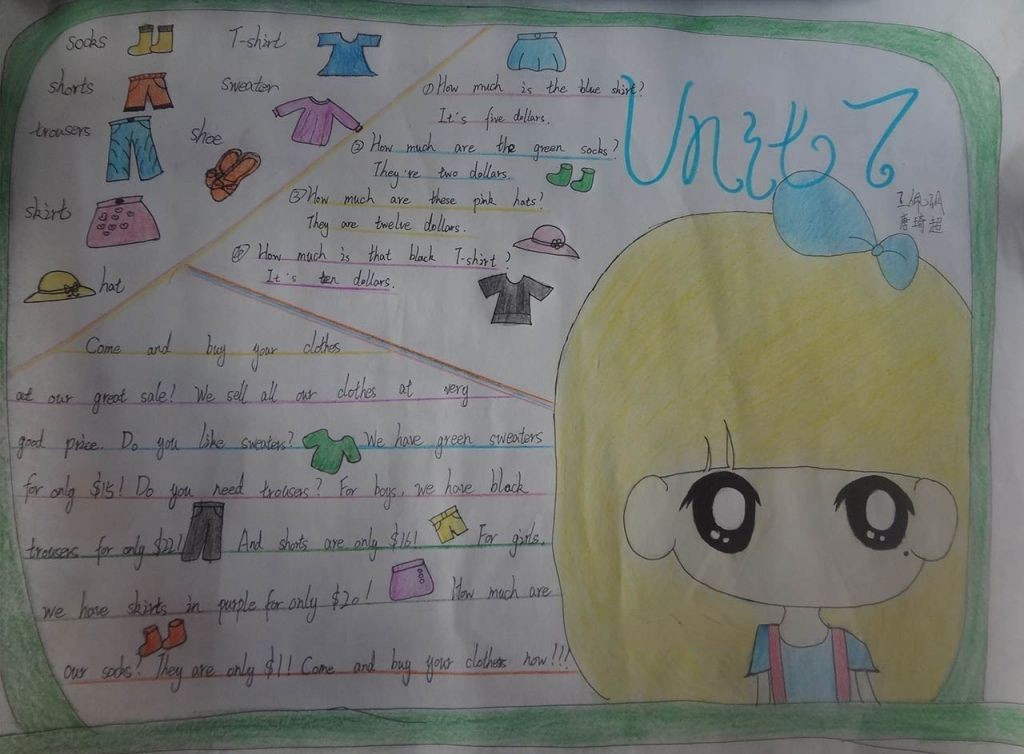 socks
T-shirt
shorts
sweater
trousers
shoe
skirt
hat
①How much is the blue skirt?
It's five dollars.
② How much are the green socks?
They're two dollars.
③How much are these pink hats?
They are twelve dollars.
④ How much is that black T-shirt?
It's ten dollars.
Unit 7
唐琦超
Come and buy your clothes
at our great sale! We sell all our clothes at very
good price. Do you like sweaters? We have green sweaters
for only $15! Do you need trousers? For boys, we have black
trousers for only $22! And shorts are only $16! For girls,
we have skirts in purple for only $20! How much are
our socks? They are only $1! Come and buy your clothers now!!!